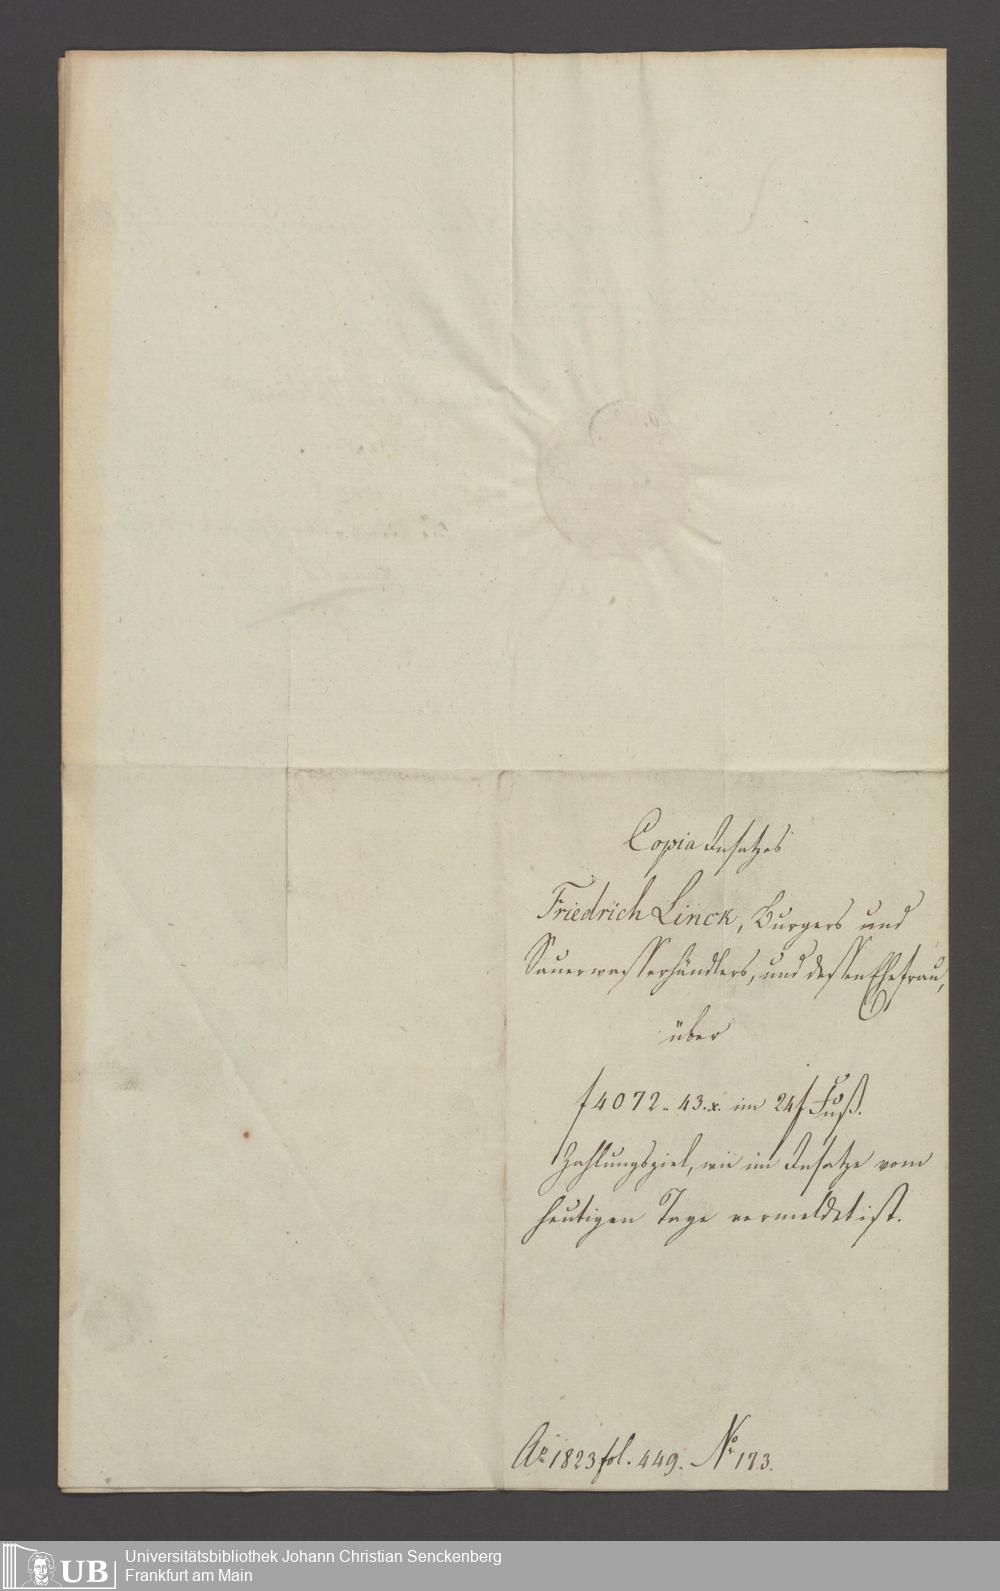 Copia Insatzes
Friedrich Linck, Burgers und
Sauerwasserhändlers, und dessen Ehefrau,
über
f 4072.. 43.x. im 24 f Fuß.
Zahlungsziel, wie im Insatze vom
heutigen Tage vermeldet ist.
Ao 1823 fol. 449. No 173.
UB
Universitätsbibliothek Johann Christian Senckenberg
Frankfurt am Main